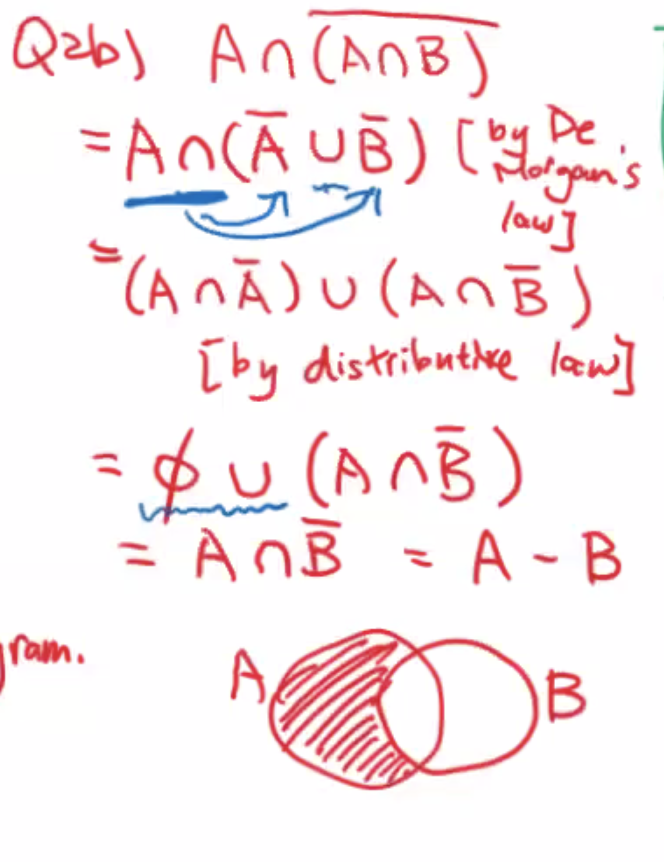 Q2b) A∩(A̅∩̅B̅)
= A∩(A̅ ∪ B̅) [by De
Morgan's
law]
= (A ∩ A̅) ∪ (A ∩ B̅)
[by distributive law]
= ϕ ∪ (A ∩ B̅)
= A ∩ B̅ = A - B
gram.
A B